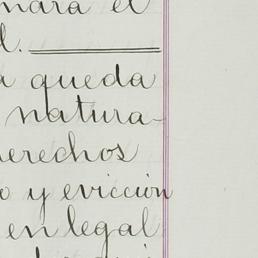 mará el
l.
a queda
natura-
derechos
o y evicción
en legal